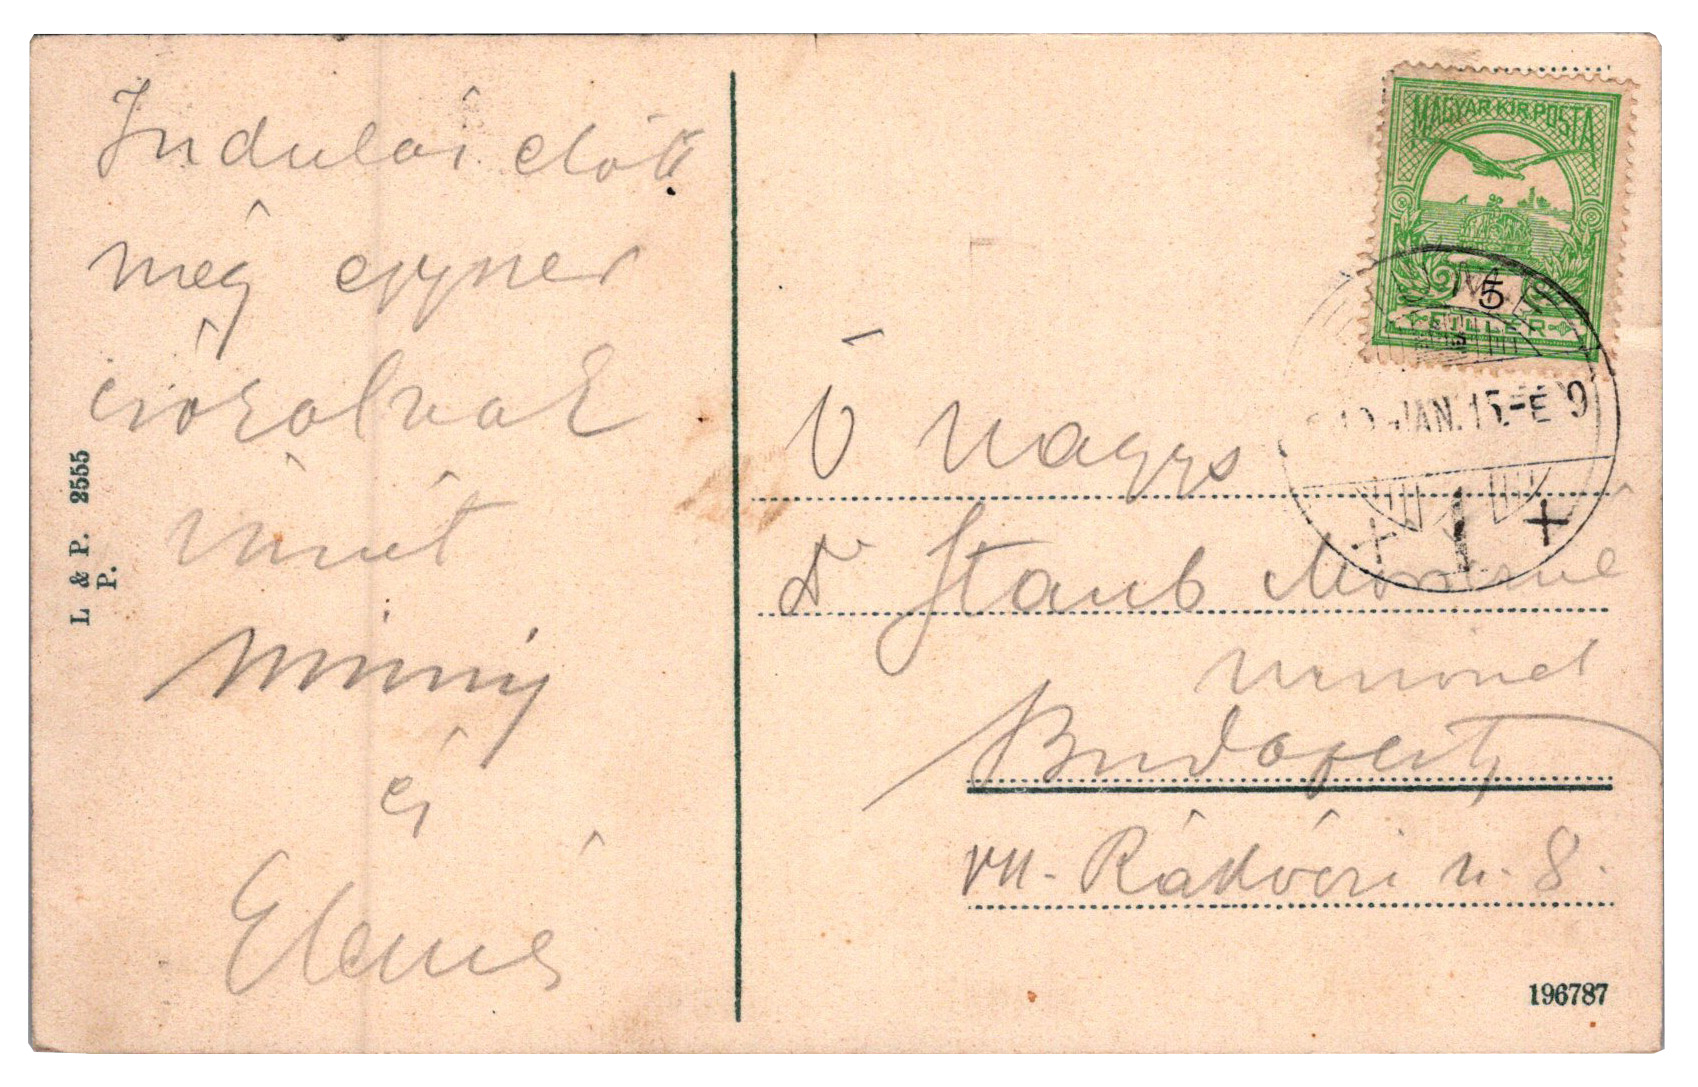 Indulás előtt
még egyszer
csókolnak
Minnÿ
és
Elemér
L. & P. 2555
P.
MAGYAR KIR. POSTA
5
FILLÉR
JAN. 15. É 9
1
Ő Nagys
Dr Staub Móricné
urnőnek
Budapest
VII. Rákóczi u. 8.
196787